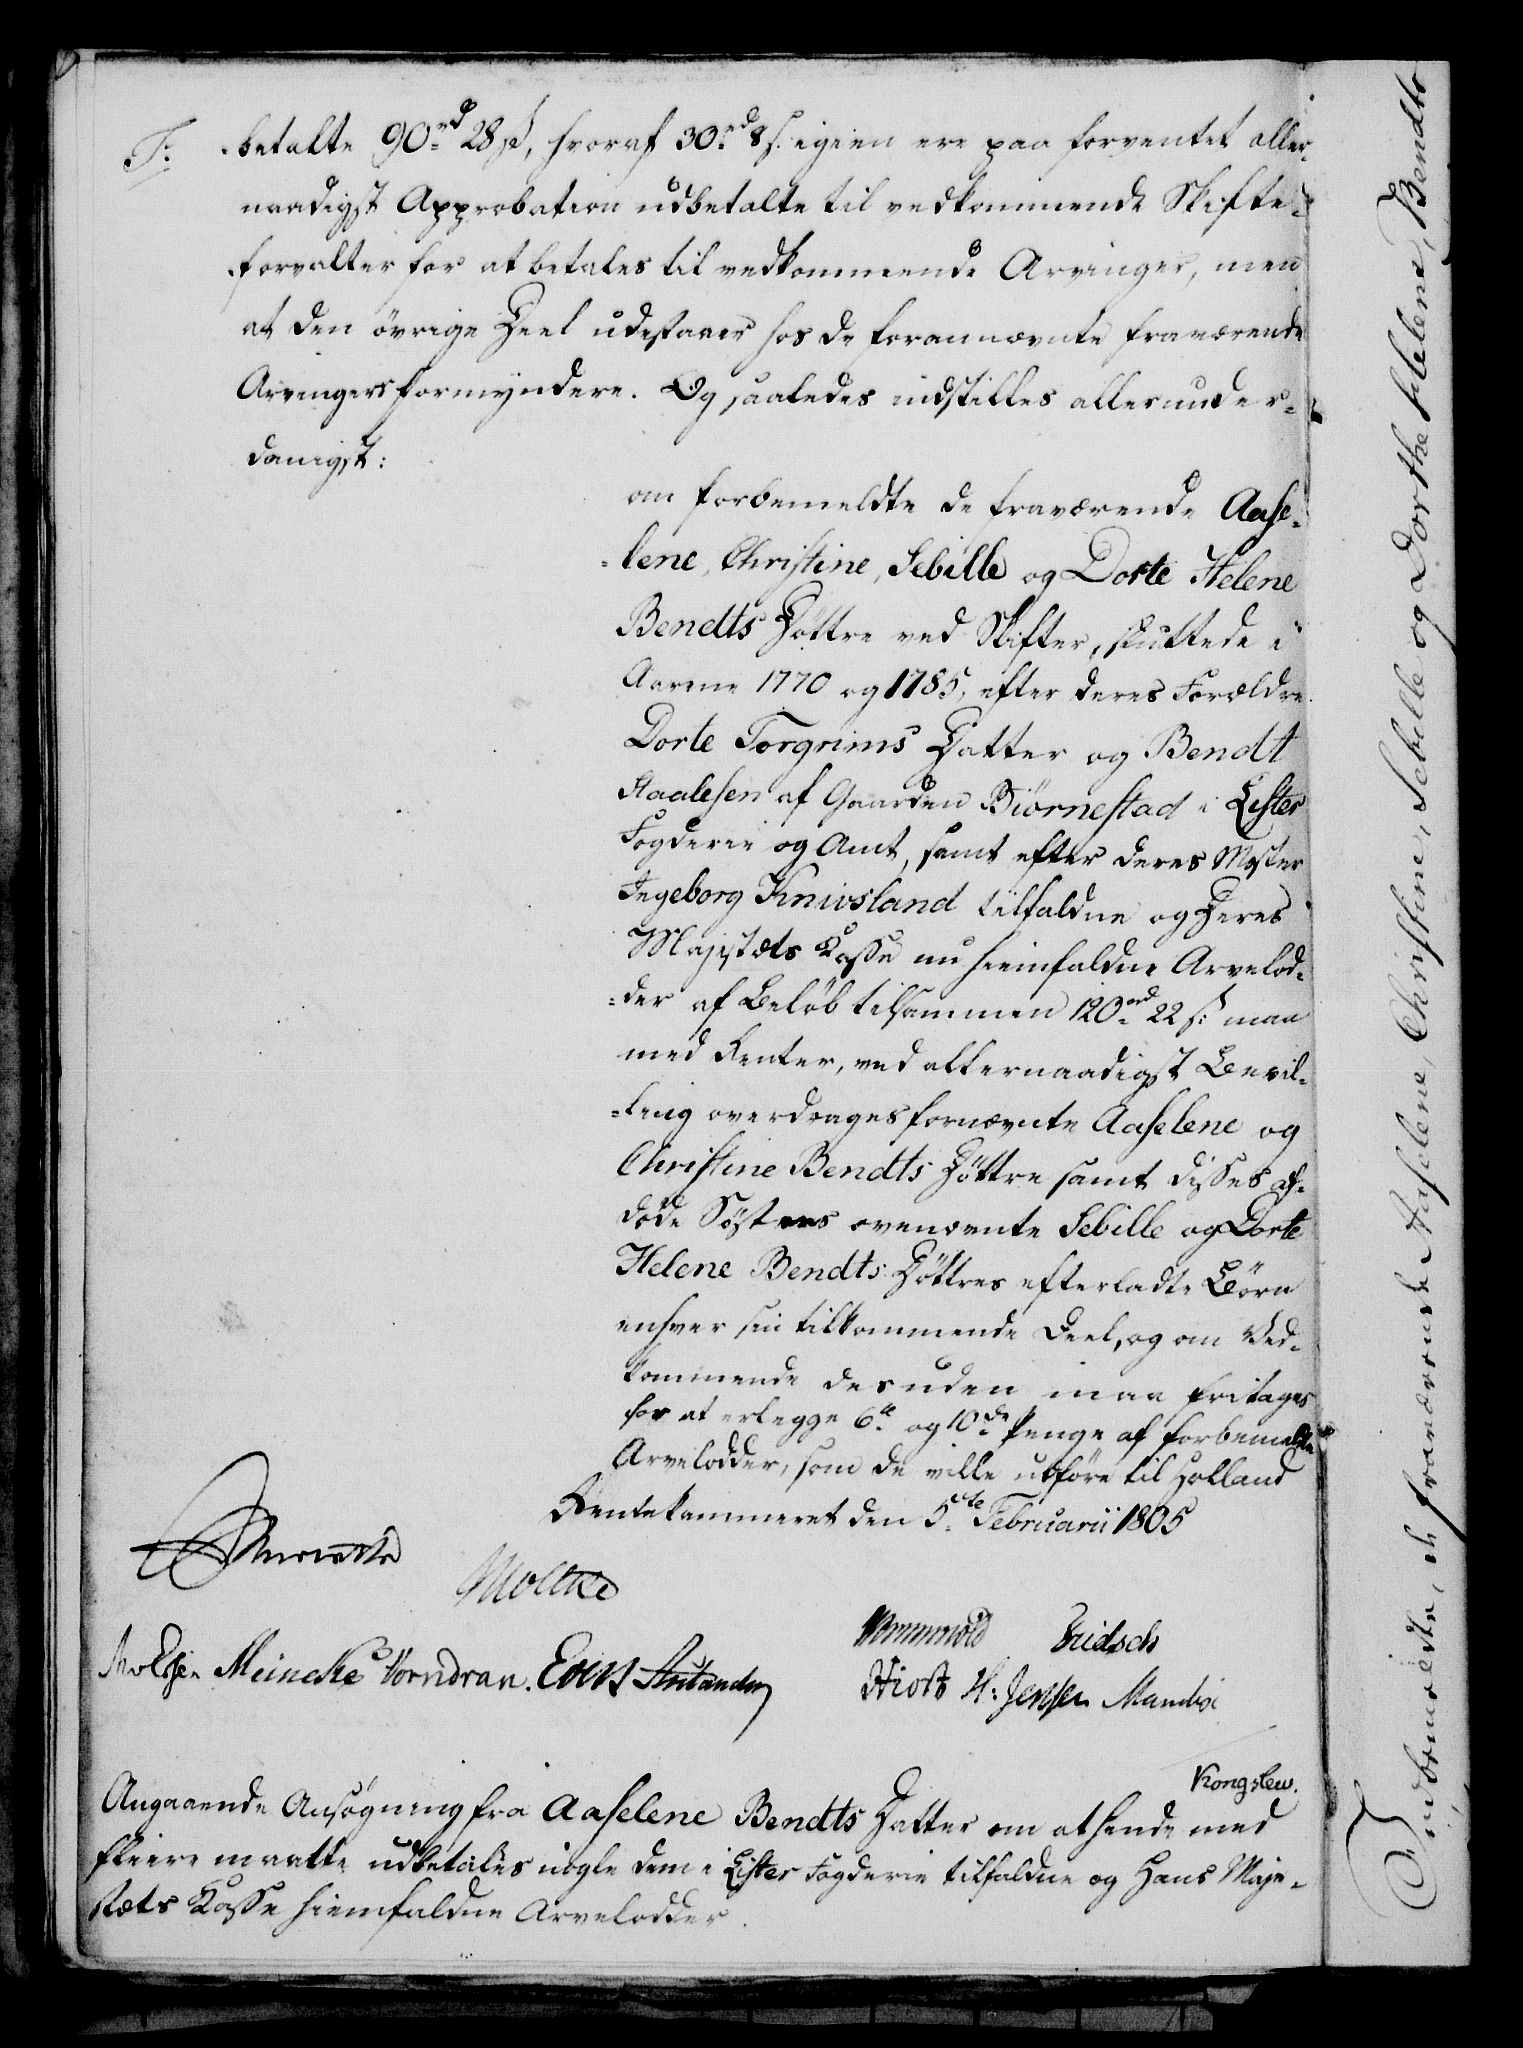 F:
betalte 90 rd 28 s, hvoraf 30 rd 8 s. igien ere paa forventet aller-
naadigst Approbation udbetalte til vedkommende Skifte-
forvalter for at betales til vedkommende Arvinger, men
at den øvrige Deel udestaaer hos de forannævnte fraværende
Arvingers formyndere. Og saaledes indstilles allerunder-
danigst:
om forbemeldte de fraværende Aase-
lene, Christine, Sebille og Dorte Helene
Bendts Døttre ved Skifter, sluttede i
Aarene 1770 og 1785, efter deres Forældre
Dorte Torgrims Datter og Bendt
Staalesen af Gaarden Biørnestad i Lister
Fogderie og Amt, samt efter deres Moster
Ingeborg Knivsland tilfaldne og Deres
Majestæts Kasse nu hiemfaldne Arvelod-
der af Beløb tilsammen 120 rd 22 s: maa
med Renter, ved allernaadigst Bevil-
ling overdrages fornævnte Aaselene og
Christine Bendts Døttre samt disses af-
døde Søstres ovennævnte Sebille og Dorte
Helene Bendts Døttres efterladte Børn
enhver sin tilkommende Deel, og om Ved-
kommende desuden maa fritages
for at erlegge 6te og 10de Penge af forbemeldte
Arvelodder, som de ville udføre til Holland
Rentekammeret den 5te Februarii 1805
Moltke
Wormskiold
Meincke Vorndran.
Hiort H: Jensen Mandix
Kongslew.
Angaaende Ansøgning fra Aaselene Bendts Datter om at hende med
fleere maatte udbetales nogle dem i Lister Fogderie tilfaldne og Hans Maje-
stæts Kasse hiemfaldne Arvelodder.
de fraværende Aaselene, Christine, Sebille og Dorthe Helene, Bendts